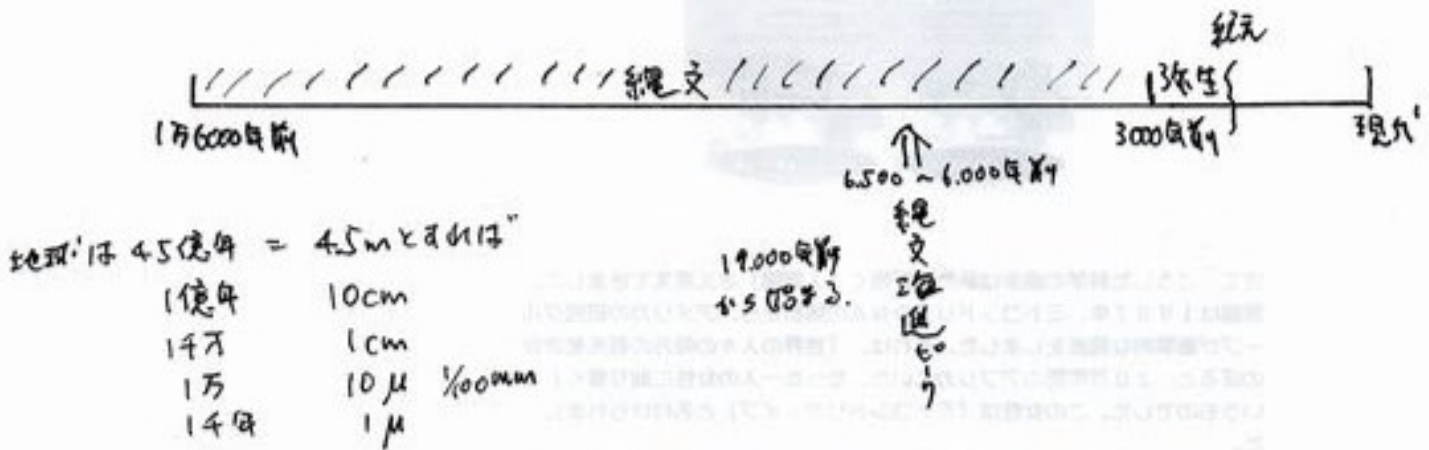 紀元
縄文 弥生
1万6000年前 3000年前 現代
6.500~6.000年前
縄文海進ピーク
19.000年前
から始まる.
地球は 45億年 = 4.5mとすれば
1億年 10cm
1千万 1cm
1万 10μ 1/100mm
1千年 1μ